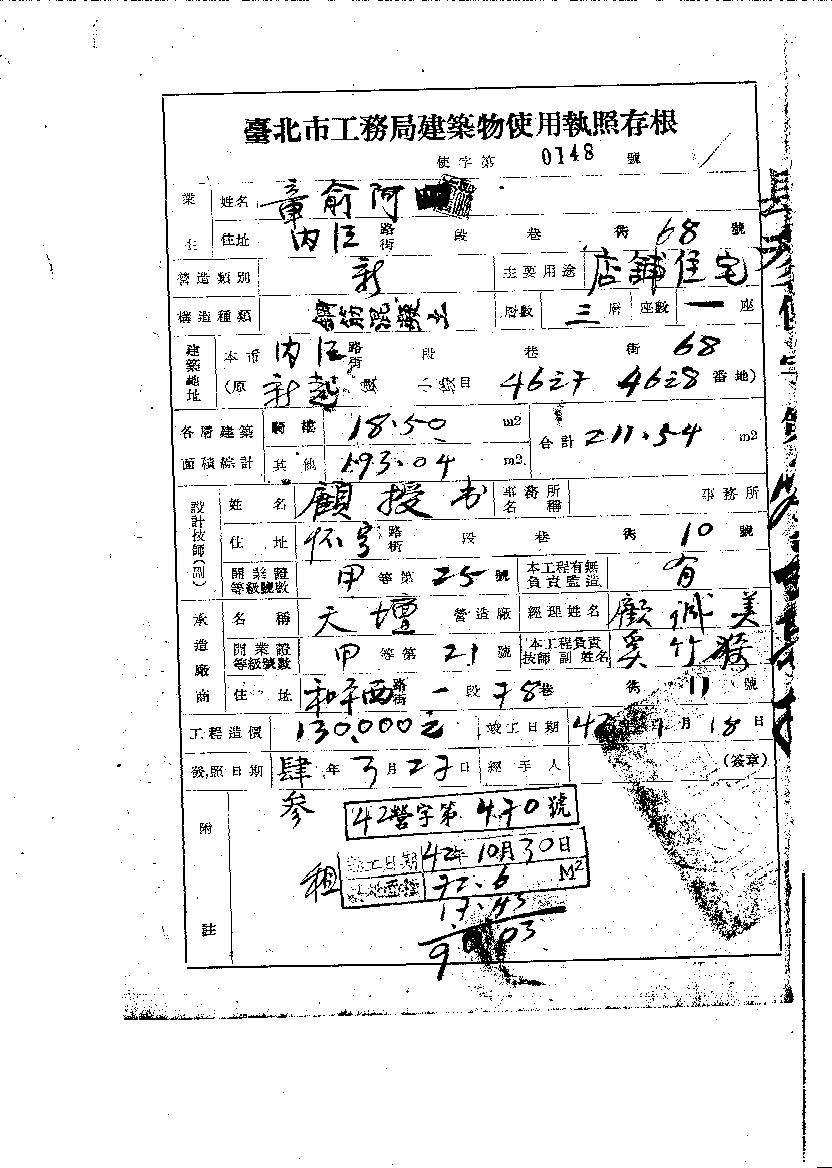 臺北市工務局建築物使用執照存根
使字第 0148 號
業主 姓名 章俞阿
住址 內江 路街 段 巷 街 68 號
營造類別 新 主要用途 店舖住宅
構造種類 層數 三 層 座數 一 座
建築地址 本市 內江 路街 段 巷 街 68
(原 新起 二 目 4627 4628 番地)
各層建築面積綜計 騎樓 18.50 m2 合計 211.54 m2
其他 193.04 m2
設計技師(副) 姓名 顧授书 事務所名稱 事務所
住址 怀宁 路街 段 巷 街 10 號
開業證等級號數 甲 等第 25 號 本工程有無負責監造 有
承造廠商 名稱 天壇 營造廠 經理姓名 顧誠美
開業證等級號數 甲 等第 21 號 本工程負責技師副姓名 奚竹
住址 和平西 路街 一 段 78 巷 街 11 號
工程造價 130,000元 竣工日期 43 1 月 18 日
發照日期 肆 年 3 月 27 日 經手人 (簽章)
附註 参
42營字第 470 號
租
竣工日期 42年10月30日
72.6 M2
17.43
90.03